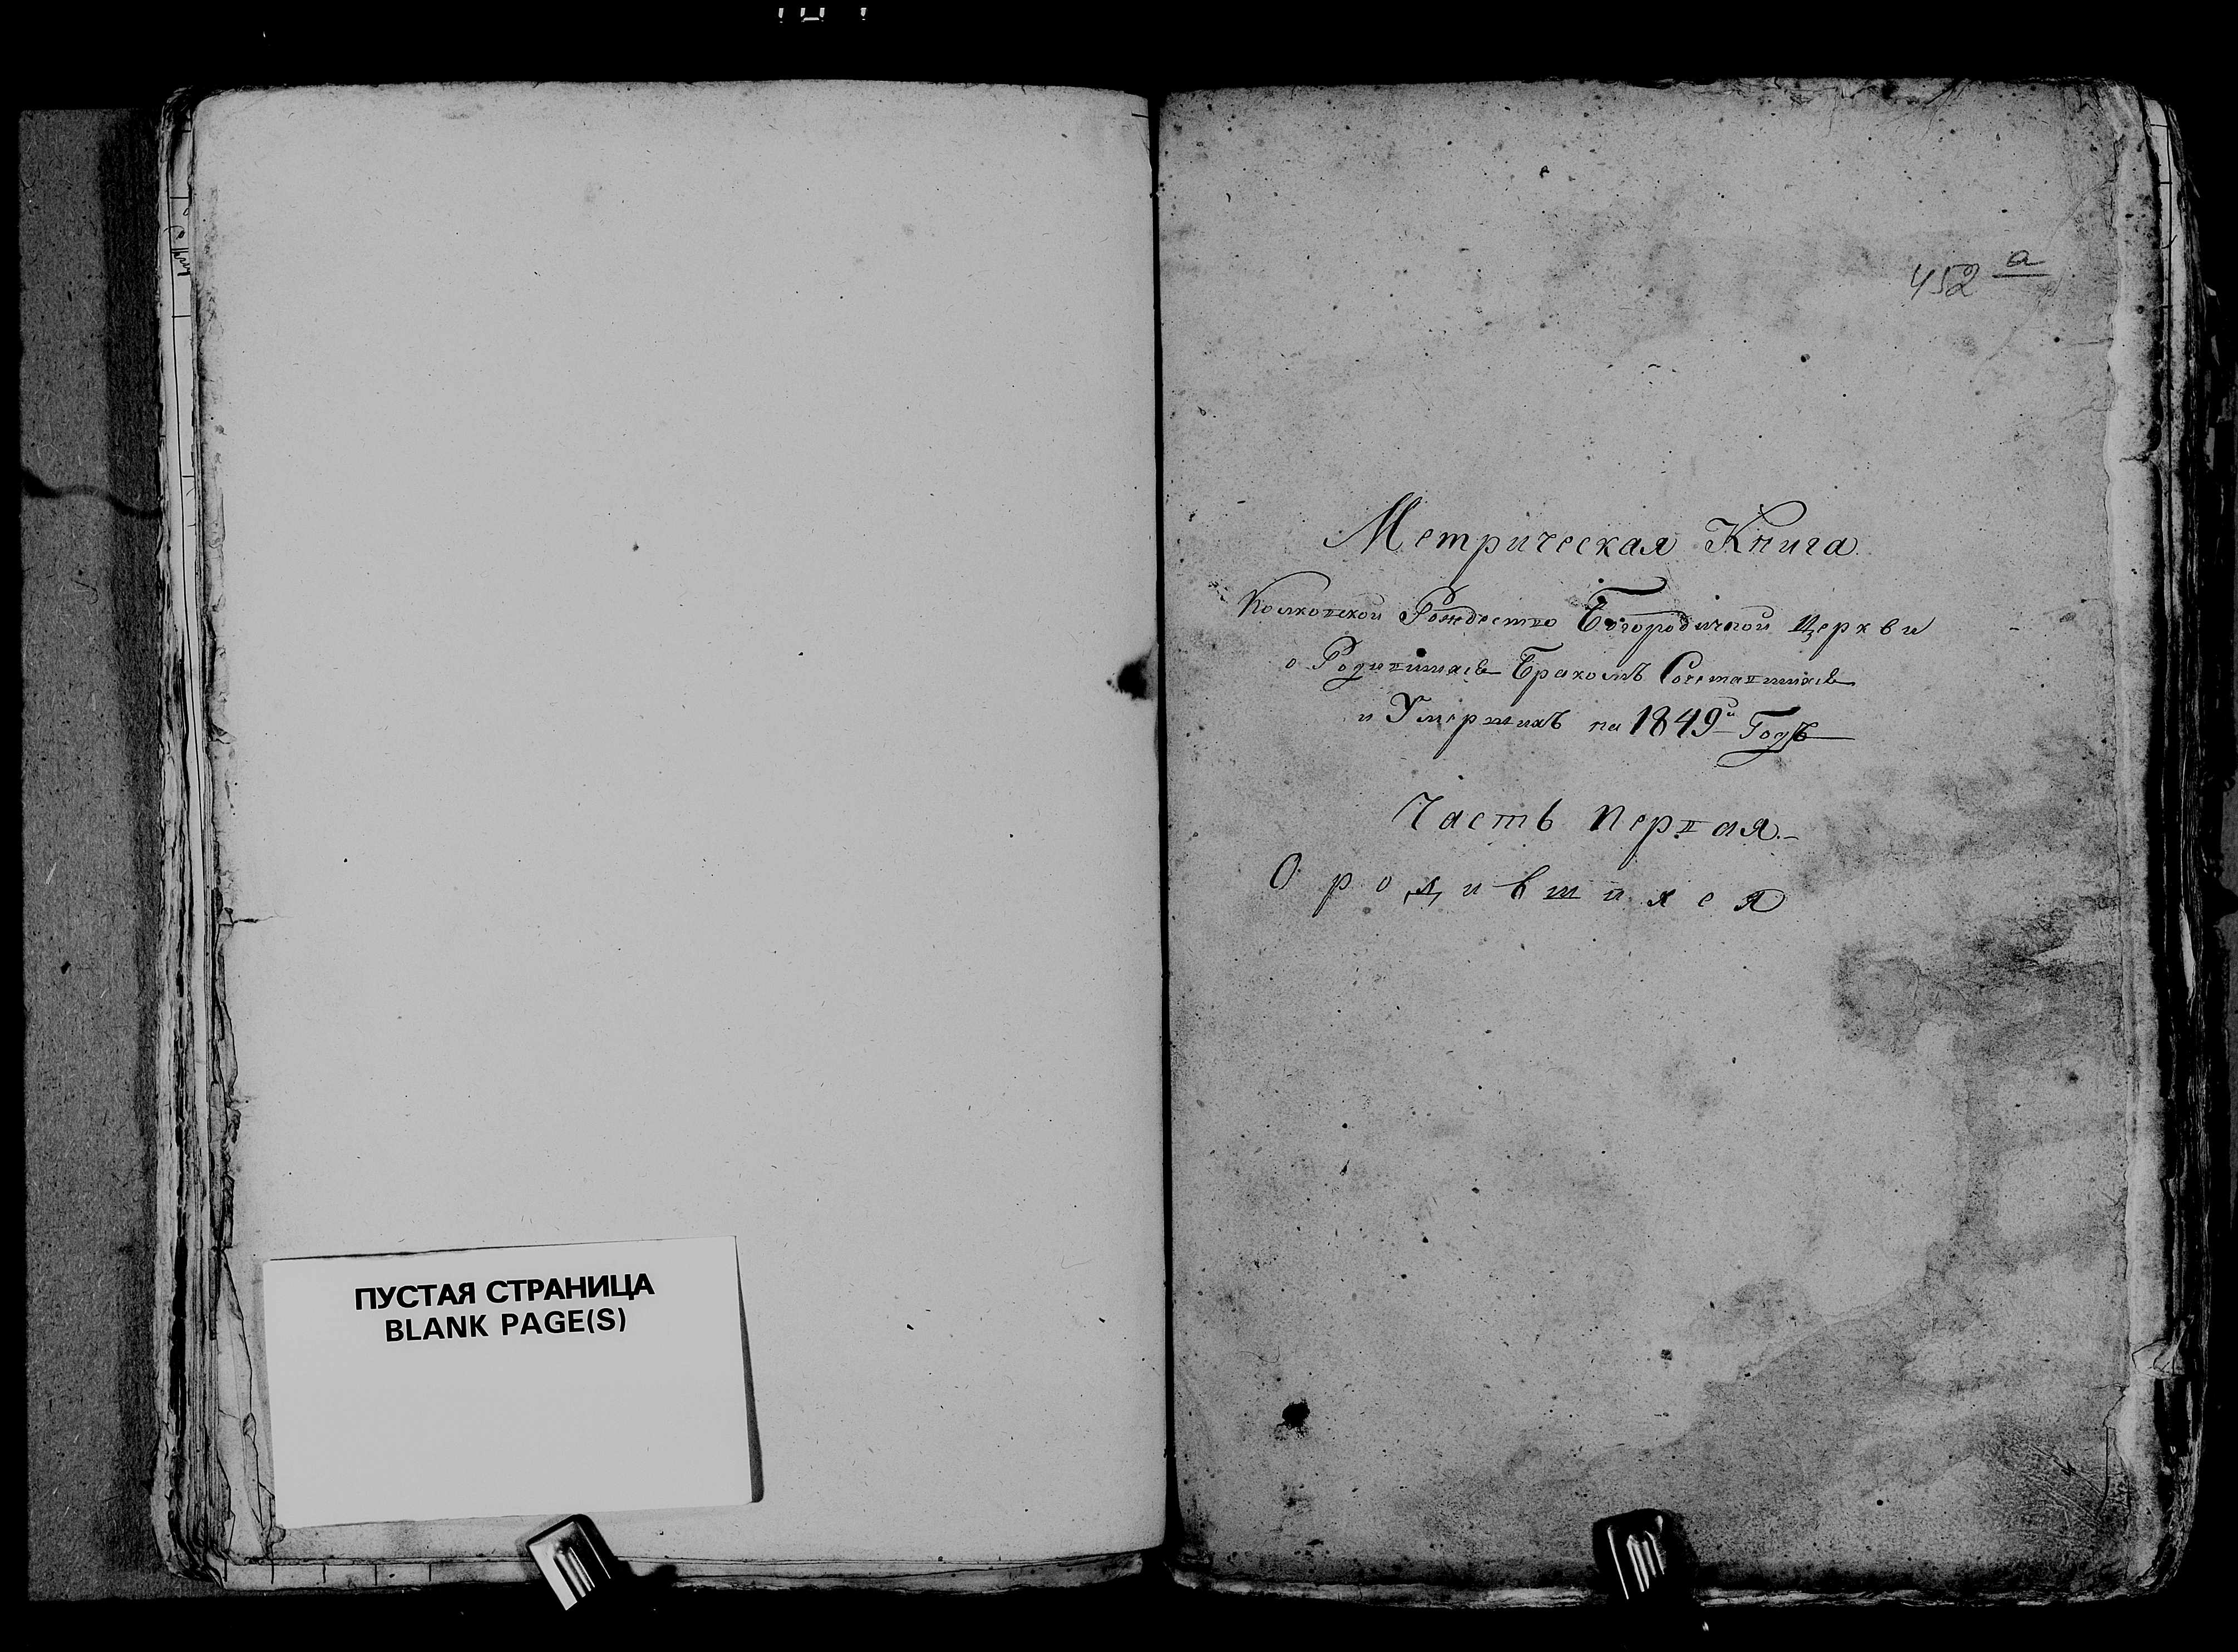 ПУСТАЯ СТРАНИЦА
BLANK PAGE(S)
452 а
Метрическая Книга
Рождество Богородичной Церкви
о Родившихся Бракомъ Сочетавшихся
и Умершихъ на 1849й Годъ
Часть Первая
О родившихся